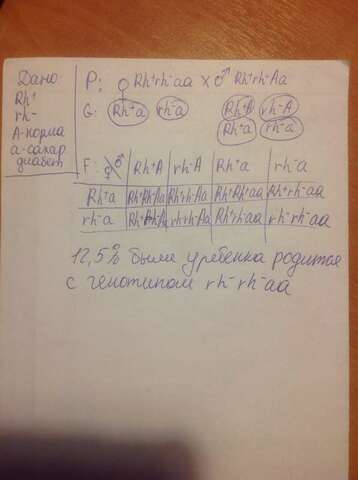 Дано:
Rh⁺
rh⁻
А-норма
а-сахар.
диабет
P: ♀ Rh⁺rh⁻aa x ♂ Rh⁺rh⁻Aa
G: Rh⁺a rh⁻a Rh⁺A rh⁻A
Rh⁺a rh⁻a
F: ♀ ♂ Rh⁺A rh⁻A Rh⁺a rh⁻a
Rh⁺a Rh⁺Rh⁺Aa Rh⁺rh⁻Aa Rh⁺Rh⁺aa Rh⁺rh⁻aa
rh⁻a Rh⁺rh⁻Aa rh⁻rh⁻Aa Rh⁺rh⁻aa rh⁻rh⁻aa
12,5% было у ребенка родится
с генотипом rh⁻rh⁻aa